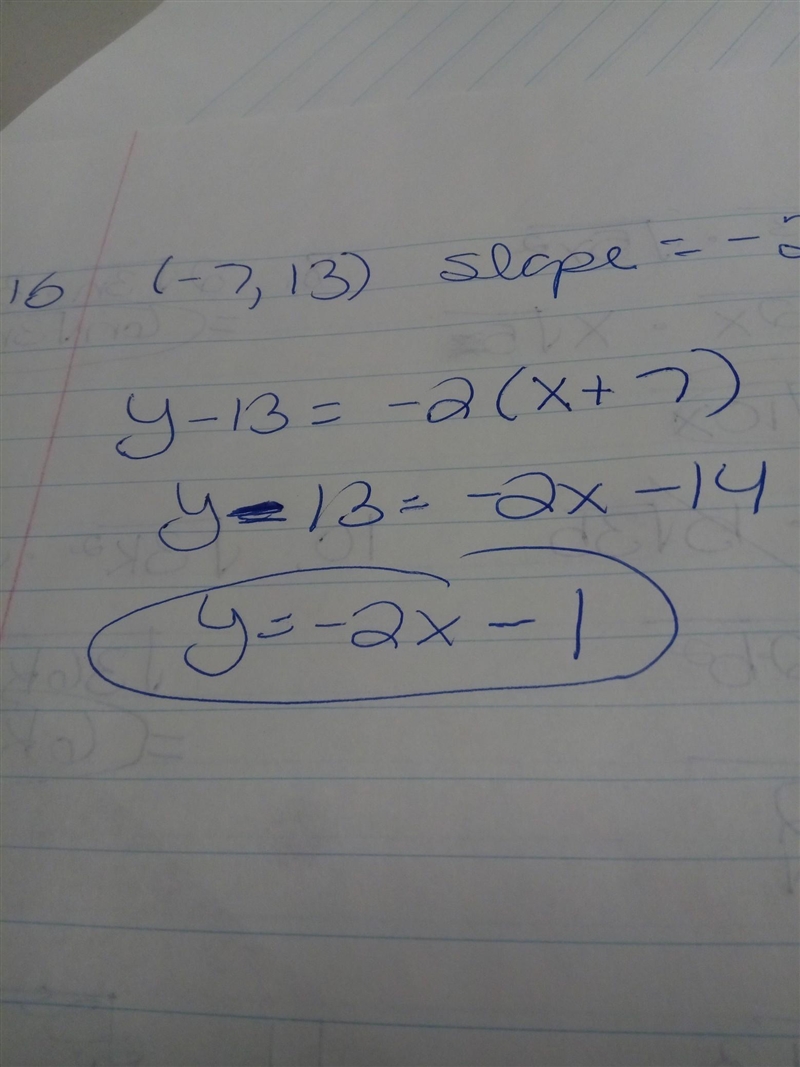 16 (-7, 13) slope = -2
y - 13 = -2(x + 7)
y - 13 = -2x - 14
y = -2x - 1